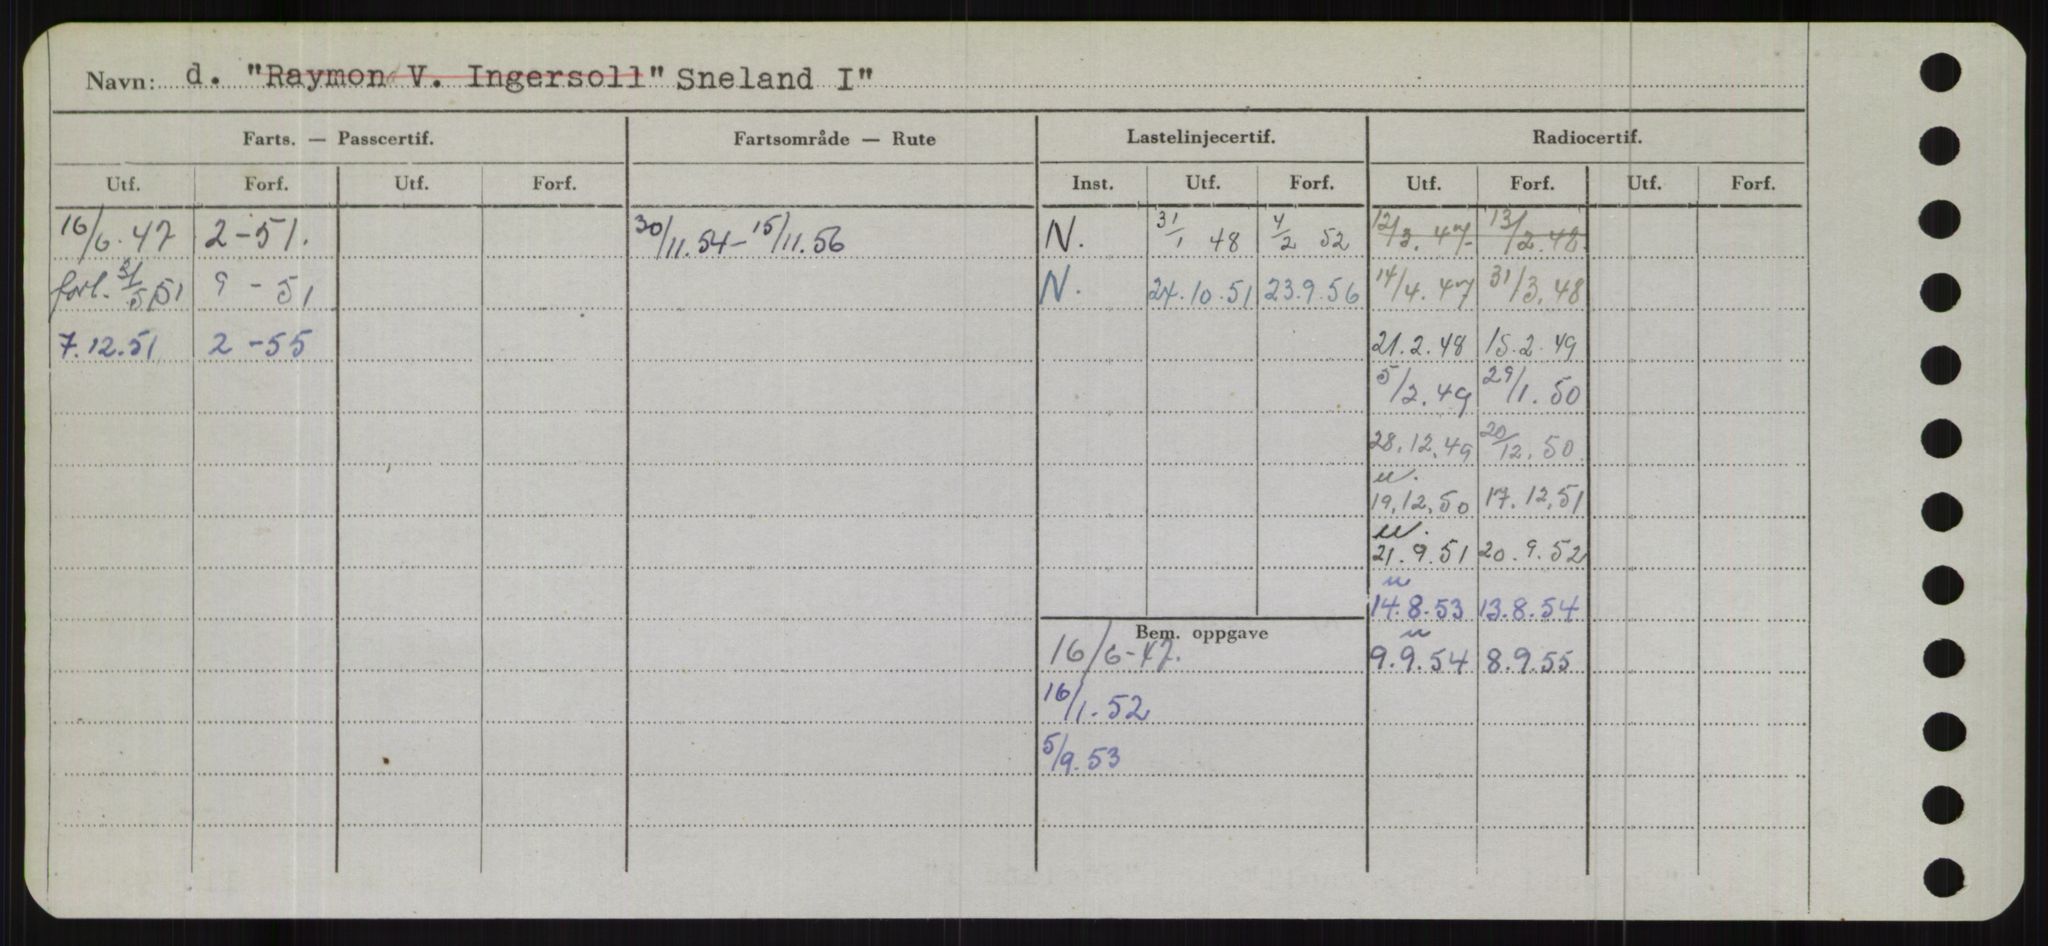 Navn: d. "Raymond V. Ingersoll" Sneland I"
Farts. — Passcertif. Fartsområde — Rute Lastelinjecertif. Radiocertif.
Utf. Forf. Utf. Forf. Inst. Utf. Forf. Utf. Forf. Utf. Forf.
16/6.47 2-51. 30/11.54-15/11.56 N. 31/1 48 4/2 52 12/3.47 13/2.48
forl. 31/5 51 9-51 N. 24.10.51 23.9.56 14/4.47 31/3.48
7.12.51 2-55 21.2.48 15.2.49
5/2.49 29/1.50
28.12.49 20/12.50
u.
19.12.50 17.12.51
u.
21.9.51 20.9.52
u
14.8.53 13.8.54
Bem. oppgave u
16/6-47. 9.9.54 8.9.55
16/1.52
5/9.53